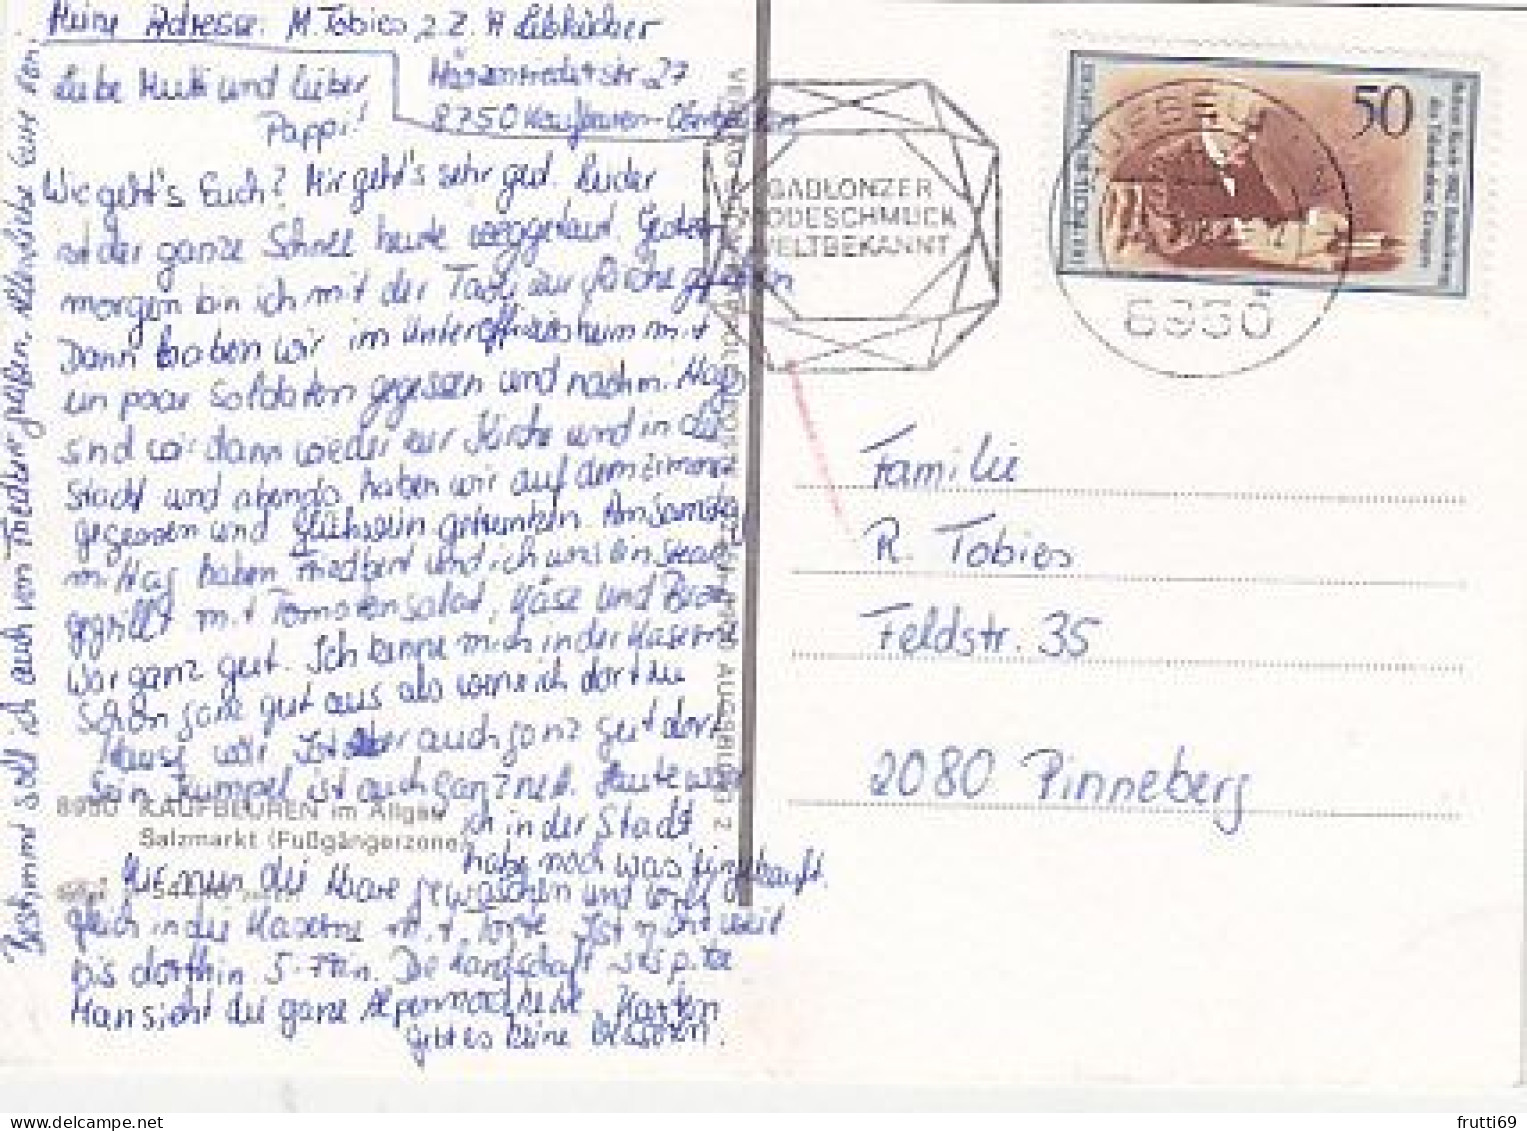 Meine Adresse: M. Tobies z. Z. A Lebkücher
27
8950 Kaufbeuren-Oberbeuren
Liebe Mutti und lieber
Pappi!
Wie geht's Euch? Mir geht's sehr gut. Leider
ist der ganze Schnee heute weggetaut. Gestern
morgen bin ich mit der Taxi zur Kirche gefahren
Dann haben wir im Unteroffiziersheim mit
ein paar Soldaten gegessen und nachm. Mag
sind wir dann wieder zur Kirche und in die
Stadt und abends haben wir auf dem Zimmer
gegessen und Glühwein getrunken. Am Samstag
mittag haben Friedbert und ich uns ein Steak
gegrillt mit Tomatensalat, Käse und Brot
War ganz gut. Ich kenne mich in der Kaserne
schon ganz gut aus als wenn ich dort zu
Hause wär. Ist aber auch ganz gut dort
Sein Kumpel ist auch ganz nett. Heute war
ich in der Stadt,
habe noch was eingekauft.
nun die Haare gewaschen und will
gleich in die Kaserne mit Torte. Ist nicht weit
bis dorthin 5 Min. Die Landschaft ist spitze
Man sieht die ganze Alpennordkette. Karten
gibt es keine besseren.
Bestimmt soll ich auch von Friedbert grüßen. Alles Liebe Eure
8950 KAUFBEUREN im Allgäu
Salzmarkt (Fußgängerzone)
GABLONZER
MODESCHMUCK
WELTBEKANNT
8950
50
Familie
R. Tobies
Feldstr. 35
2080 Pinneberg
frutti69